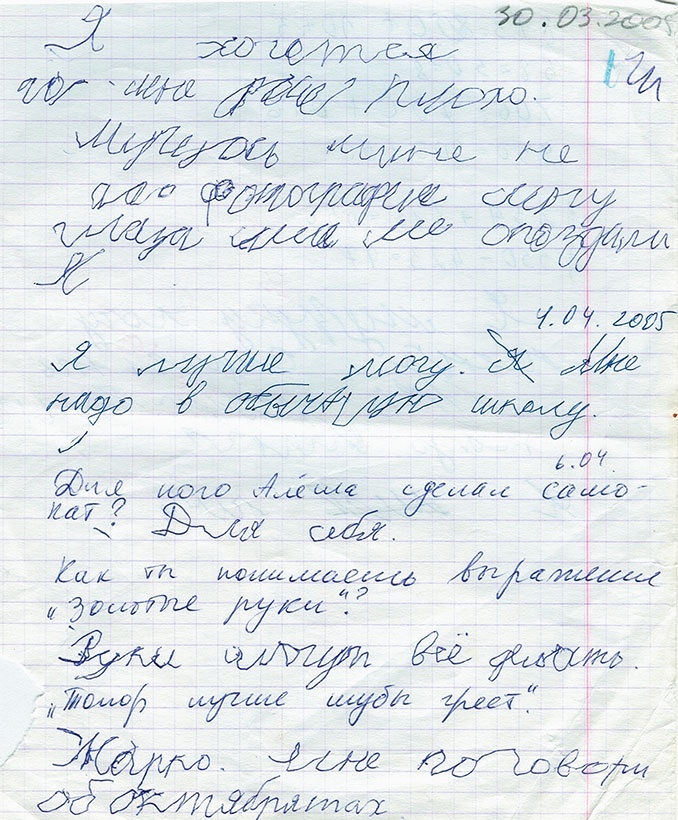 30.03.2005
Я хочется
мне плохо.
мне не
фотографие могу
глаза опоздали
Я
4.04.2005
Я лучше могу. Я Мне
надо в обычную школу.
6.04.
Для кого Алёша сделал само-
кат? Для себя.
Как ты понимаешь выражение
„Золотые руки"?
Руки могут всё делать.
„Топор лучше шубы греет".
Жарко. мне поговори
об октябрятах